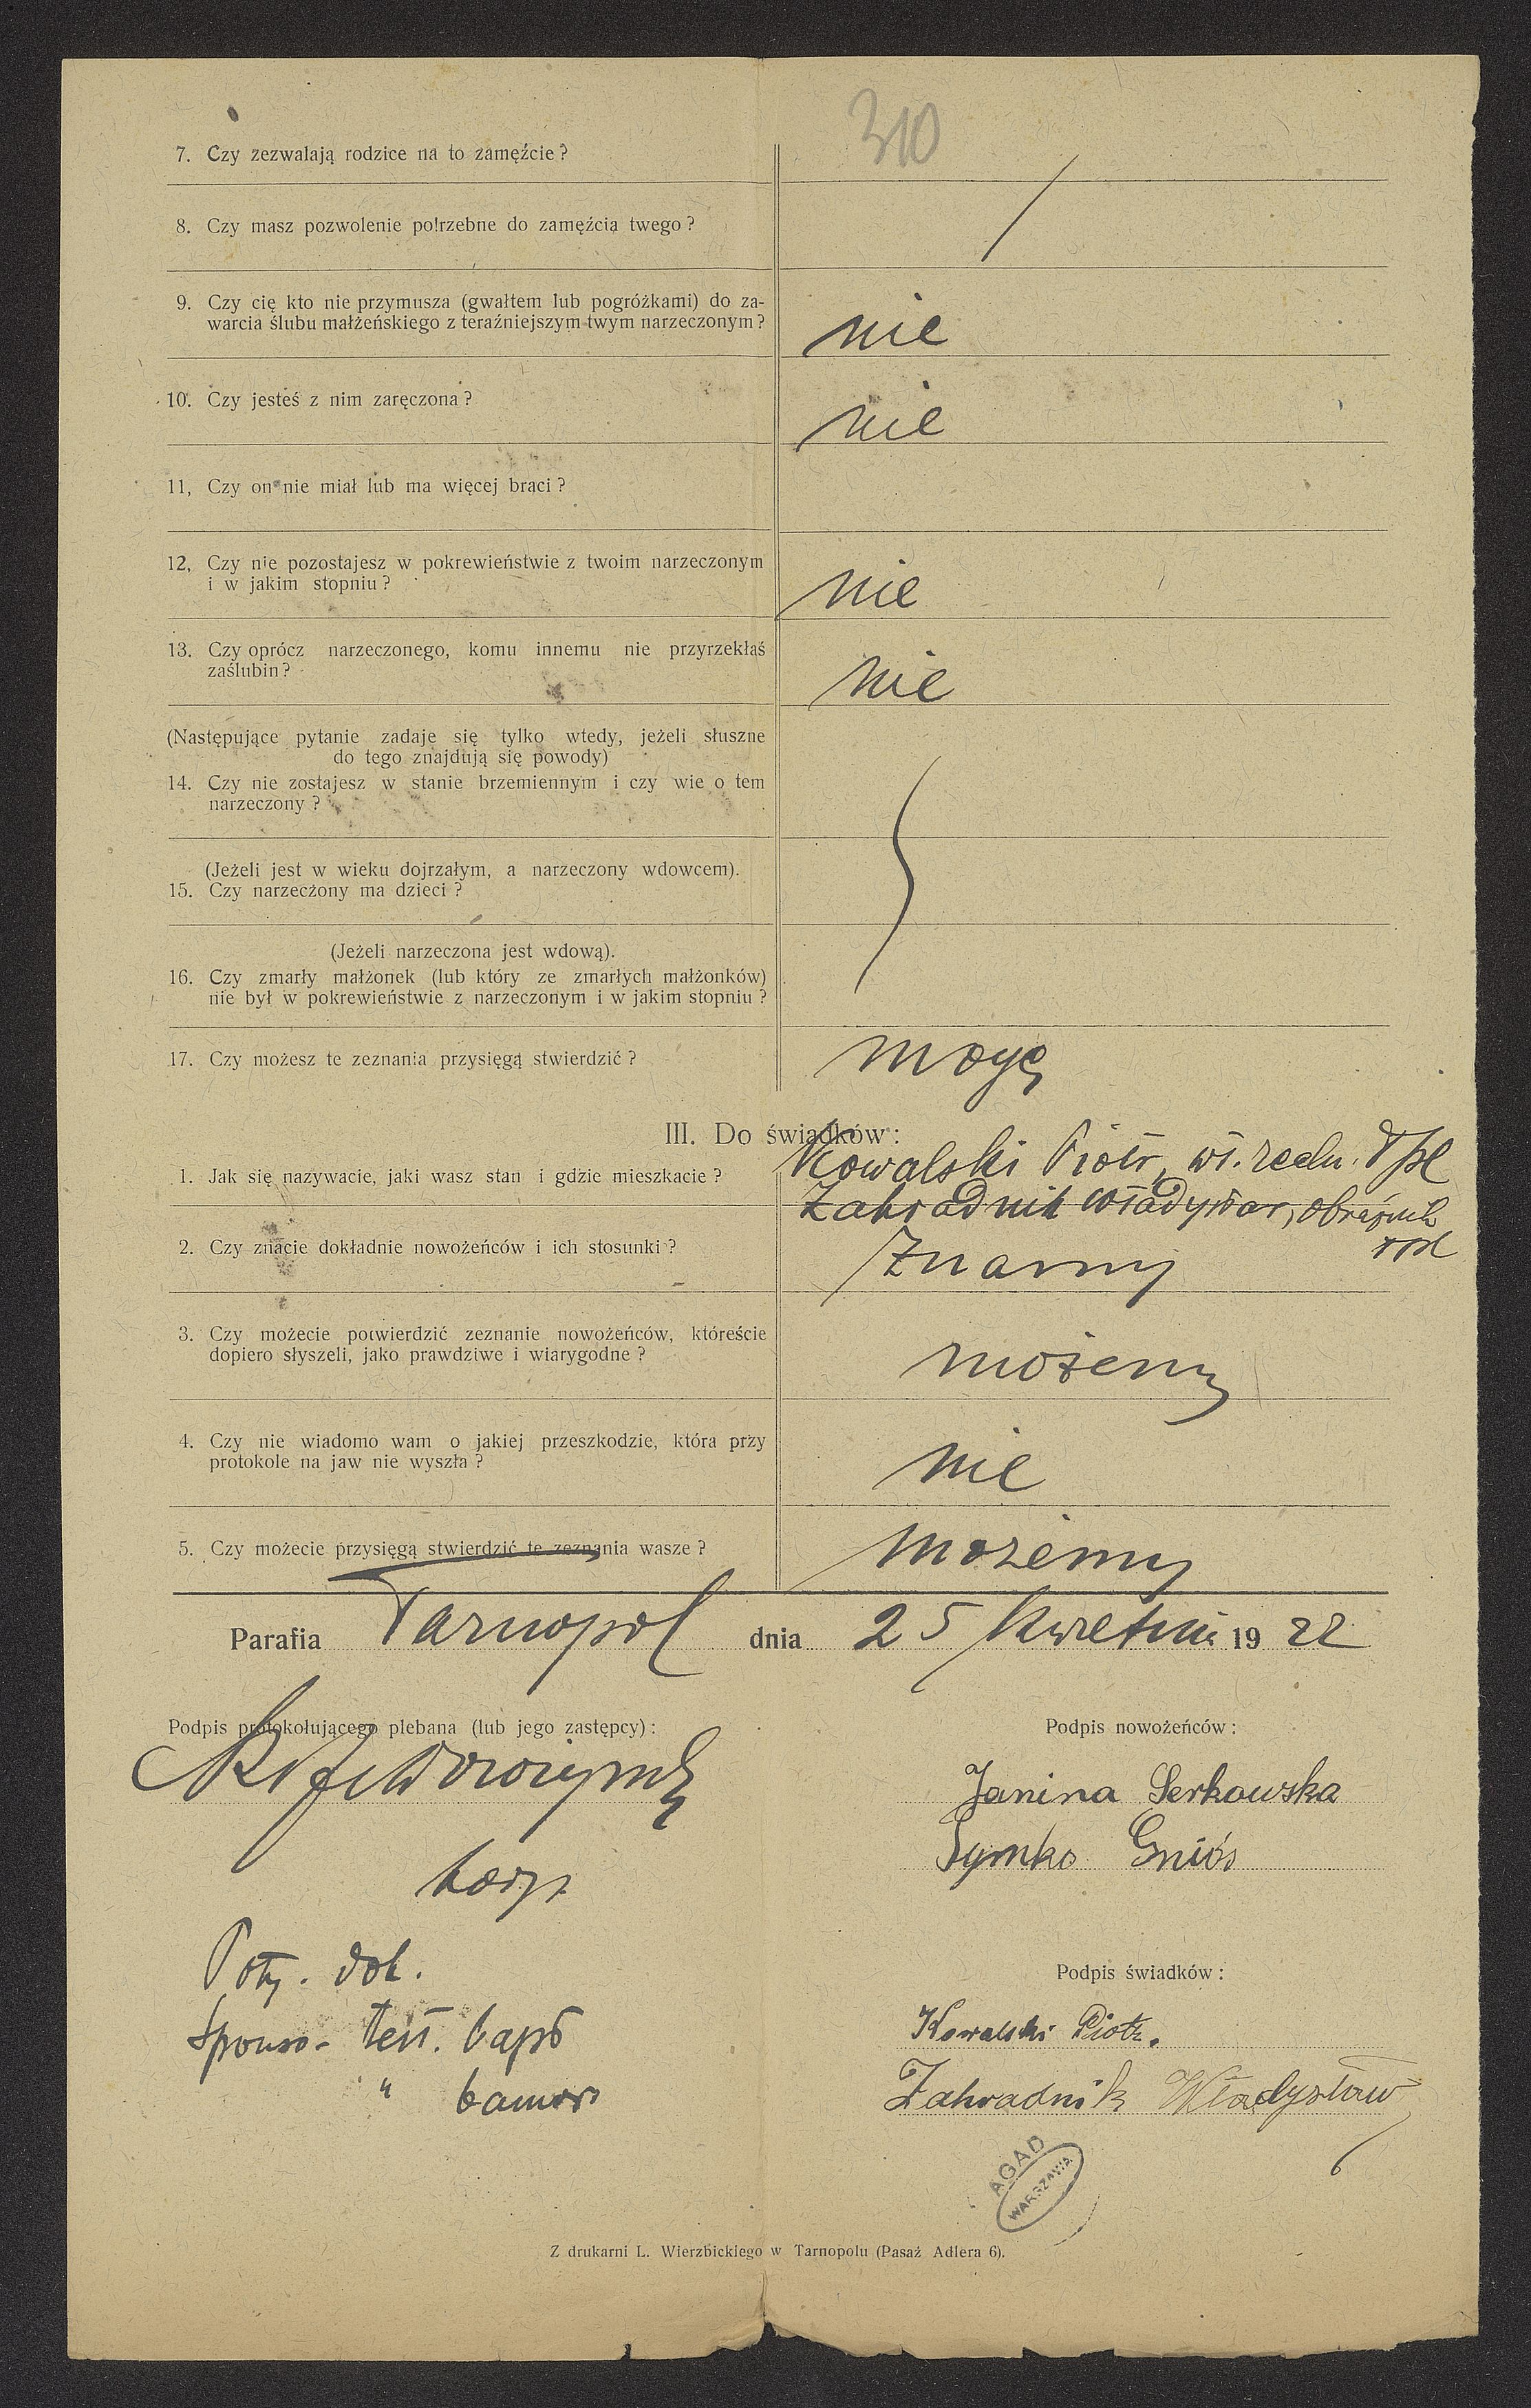 310
7. Czy zezwalają rodzice na to zamęźcie?
8. Czy masz pozwolenie potrzebne do zamęźcia twego?
9. Czy cię kto nie przymusza (gwałtem lub pogróżkami) do za-
warcia ślubu małżeńskiego z teraźniejszym twym narzeczonym?
nie
10. Czy jesteś z nim zaręczona?
nie
11, Czy on nie miał lub ma więcej braci?
12, Czy nie pozostajesz w pokrewieństwie z twoim narzeczonym
i w jakim stopniu?
nie
13. Czy oprócz narzeczonego, komu innemu nie przyrzekłaś
zaślubin?
nie
(Następujące pytanie zadaje się tylko wtedy, jeżeli słuszne
do tego znajdują się powody)
14. Czy nie zostajesz w stanie brzemiennym i czy wie o tem
narzeczony?
(Jeżeli jest w wieku dojrzałym, a narzeczony wdowcem).
15. Czy narzeczony ma dzieci?
(Jeżeli narzeczona jest wdową).
16. Czy zmarły małżonek (lub który ze zmarłych małżonków)
nie był w pokrewieństwie z narzeczonym i w jakim stopniu?
17. Czy możesz te zeznania przysięgą stwierdzić?
mogę
III. Do świadków:
1. Jak się nazywacie, jaki wasz stan i gdzie mieszkacie?
Kowalski Piotr,
Zahradnik Władysław,
2. Czy znacie dokładnie nowożeńców i ich stosunki?
Znamy
3. Czy możecie potwierdzić zeznanie nowożeńców, któreście
dopiero słyszeli, jako prawdziwe i wiarygodne?
możemy
4. Czy nie wiadomo wam o jakiej przeszkodzie, która przy
protokole na jaw nie wyszła?
nie
5. Czy możecie przysięgą stwierdzić te zeznania wasze?
możemy
Parafia Tarnopol dnia 25 kwietnia 1922
Podpis protokołującego plebana (lub jego zastępcy):
Podpis nowożeńców:
Janina Serkowska
Symko Gniós
dok.
Podpis świadków:
Kowalski Piotr.
Zahradnik Władysław
AGAD
WARSZAWA
Z drukarni L. Wierzbickiego w Tarnopolu (Pasaż Adlera 6).